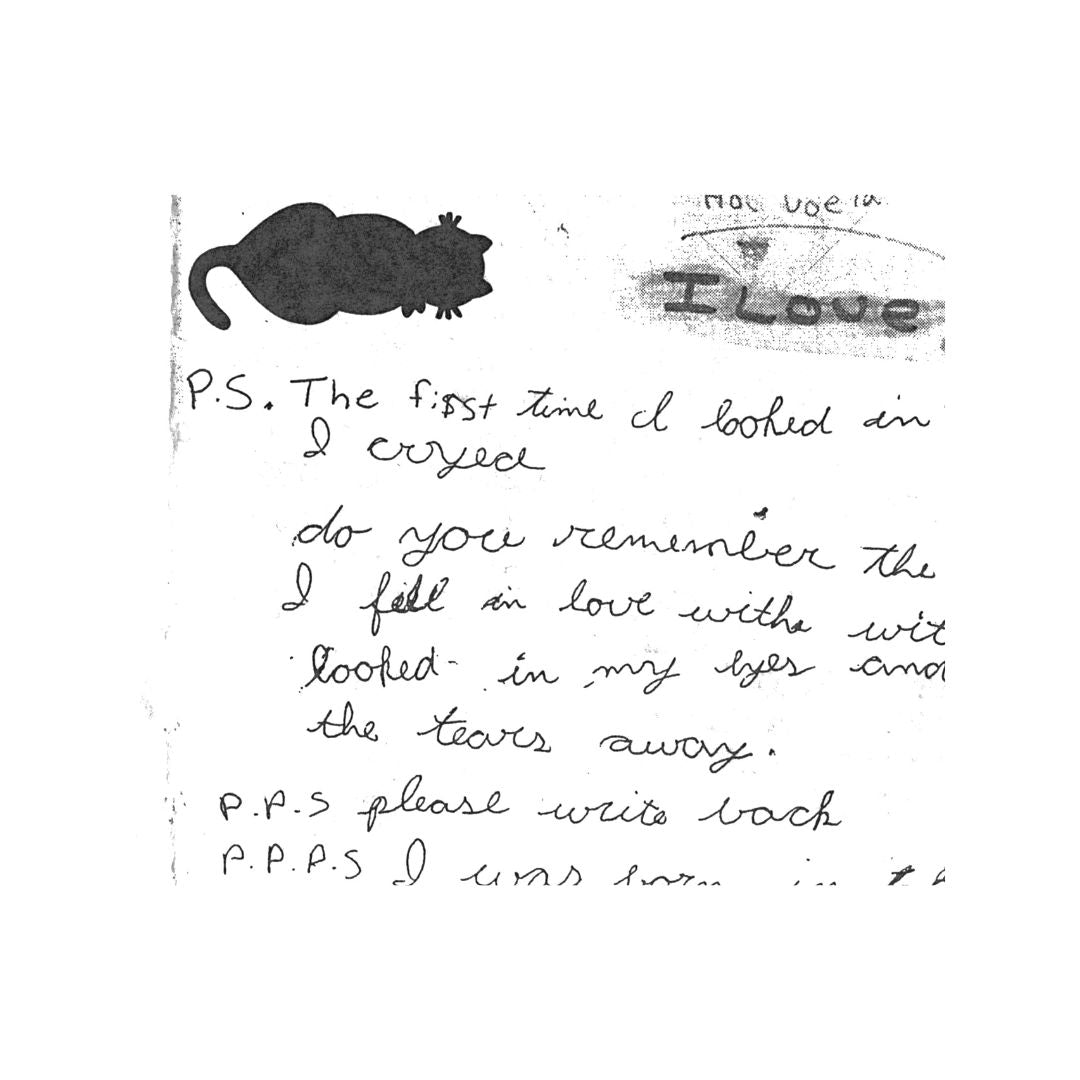 I Love
P.S. The first time I looked in
I cryed
do you remember the
I fell in love with wit
looked in my eyes and
the tears away.
P.P.S please write back
P.P.P.S I was born in th